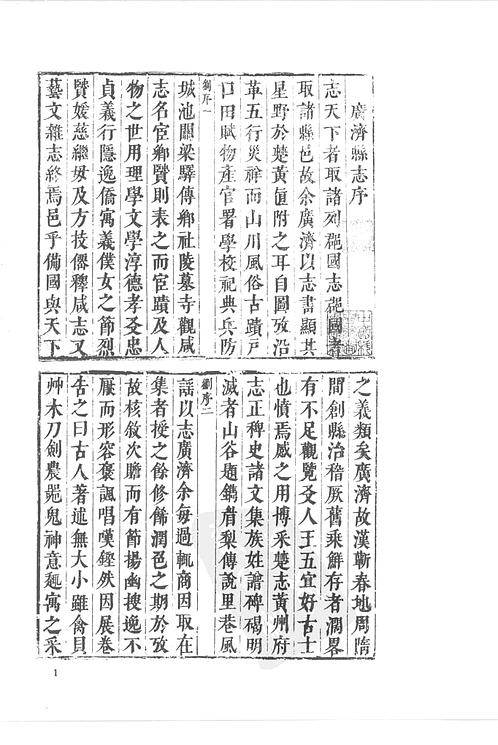 廣濟縣志序
志天下者取諸列郡國志郡國者
取諸縣邑故余廣濟以志書顯其
星野於楚黃值附之耳自圖攷沿
革五行災祥而山川風俗古蹟戸
口田賦物產官署學校祀典兵防
劉序一
城池關梁驛傳鄉社陵墓寺觀咸
志名宦鄉賢則表之而宦蹟及人
物之世用理學文學淳德孝爻忠
貞義行隱逸僑寓義僕女之節烈
賢媛慈繼毋及方技僊釋咸志又
藝文雜志終焉邑乎備國與天下
之義類矣廣濟故漢蘄春地周隋
間創縣治稽厥舊乘鮮存者濶畧
有不足觀覽爻人王五宜好古士
也憤焉感之用博采楚志黃州府
志正稗史諸文集族姓譜碑碣明
滅者山谷題鐫耆梨傳說里巷風
劉序二
謡以志廣濟余每過輒商因取在
集者授之餘修飾潤色之期於攷
故核敘次贍而有節揚幽搜逸不
厭而形容褒諷唱嘆鏗然因展卷
告之曰古人著述無大小雖禽貝
艸木刀劍農嵬鬼神意趣寓之采
1